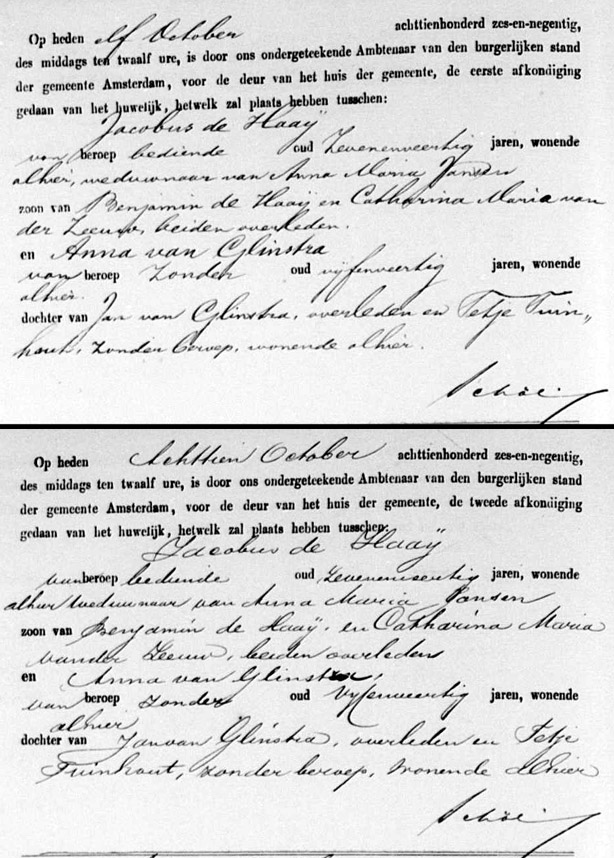 Op heden elf October achttienhonderd zes-en-negentig,
des middags ten twaalf ure, is door ons ondergeteekende Ambtenaar van den burgerlijken stand
der gemeente Amsterdam, voor de deur van het huis der gemeente, de eerste afkondiging
gedaan van het huwelijk, hetwelk zal plaats hebben tusschen:
Jacobus de Haaÿ
van beroep bediende oud Zevenenveertig jaren, wonende
alhier, weduwnaar van Anna Maria Jansen
zoon van Benjamin de Haaij en Catharina Maria van
der Zeeuw, beiden overleden.
en Anna van Glinstra
van beroep Zonder oud vijfenveertig jaren, wonende
alhier.
dochter van Jan van Glinstra, overleden en Tetje Tuin„
hout, zonder beroep, wonende alhier.
Op heden Achttien October achttienhonderd zes-en-negentig,
des middags ten twaalf ure, is door ons ondergeteekende Ambtenaar van den burgerlijken stand
der gemeente Amsterdam, voor de deur van het huis der gemeente, de tweede afkondiging
gedaan van het huwelijk, hetwelk zal plaats hebben tusschen:
Jacobus de Haaÿ
van beroep bediende oud Zevenenveertig jaren, wonende
alhier weduwnaar van Anna Maria Jansen
zoon van Benjamin de Haaÿ, en Catharina Maria
van der Zeeuw, beiden overleden
en Anna van Glinstra,
van beroep zonder oud Vyfenveertig jaren, wonende
alhier
dochter van Jan van Glinstra, overleden en Tetje
Tuinhout, zonder beroep, wonende Alhier